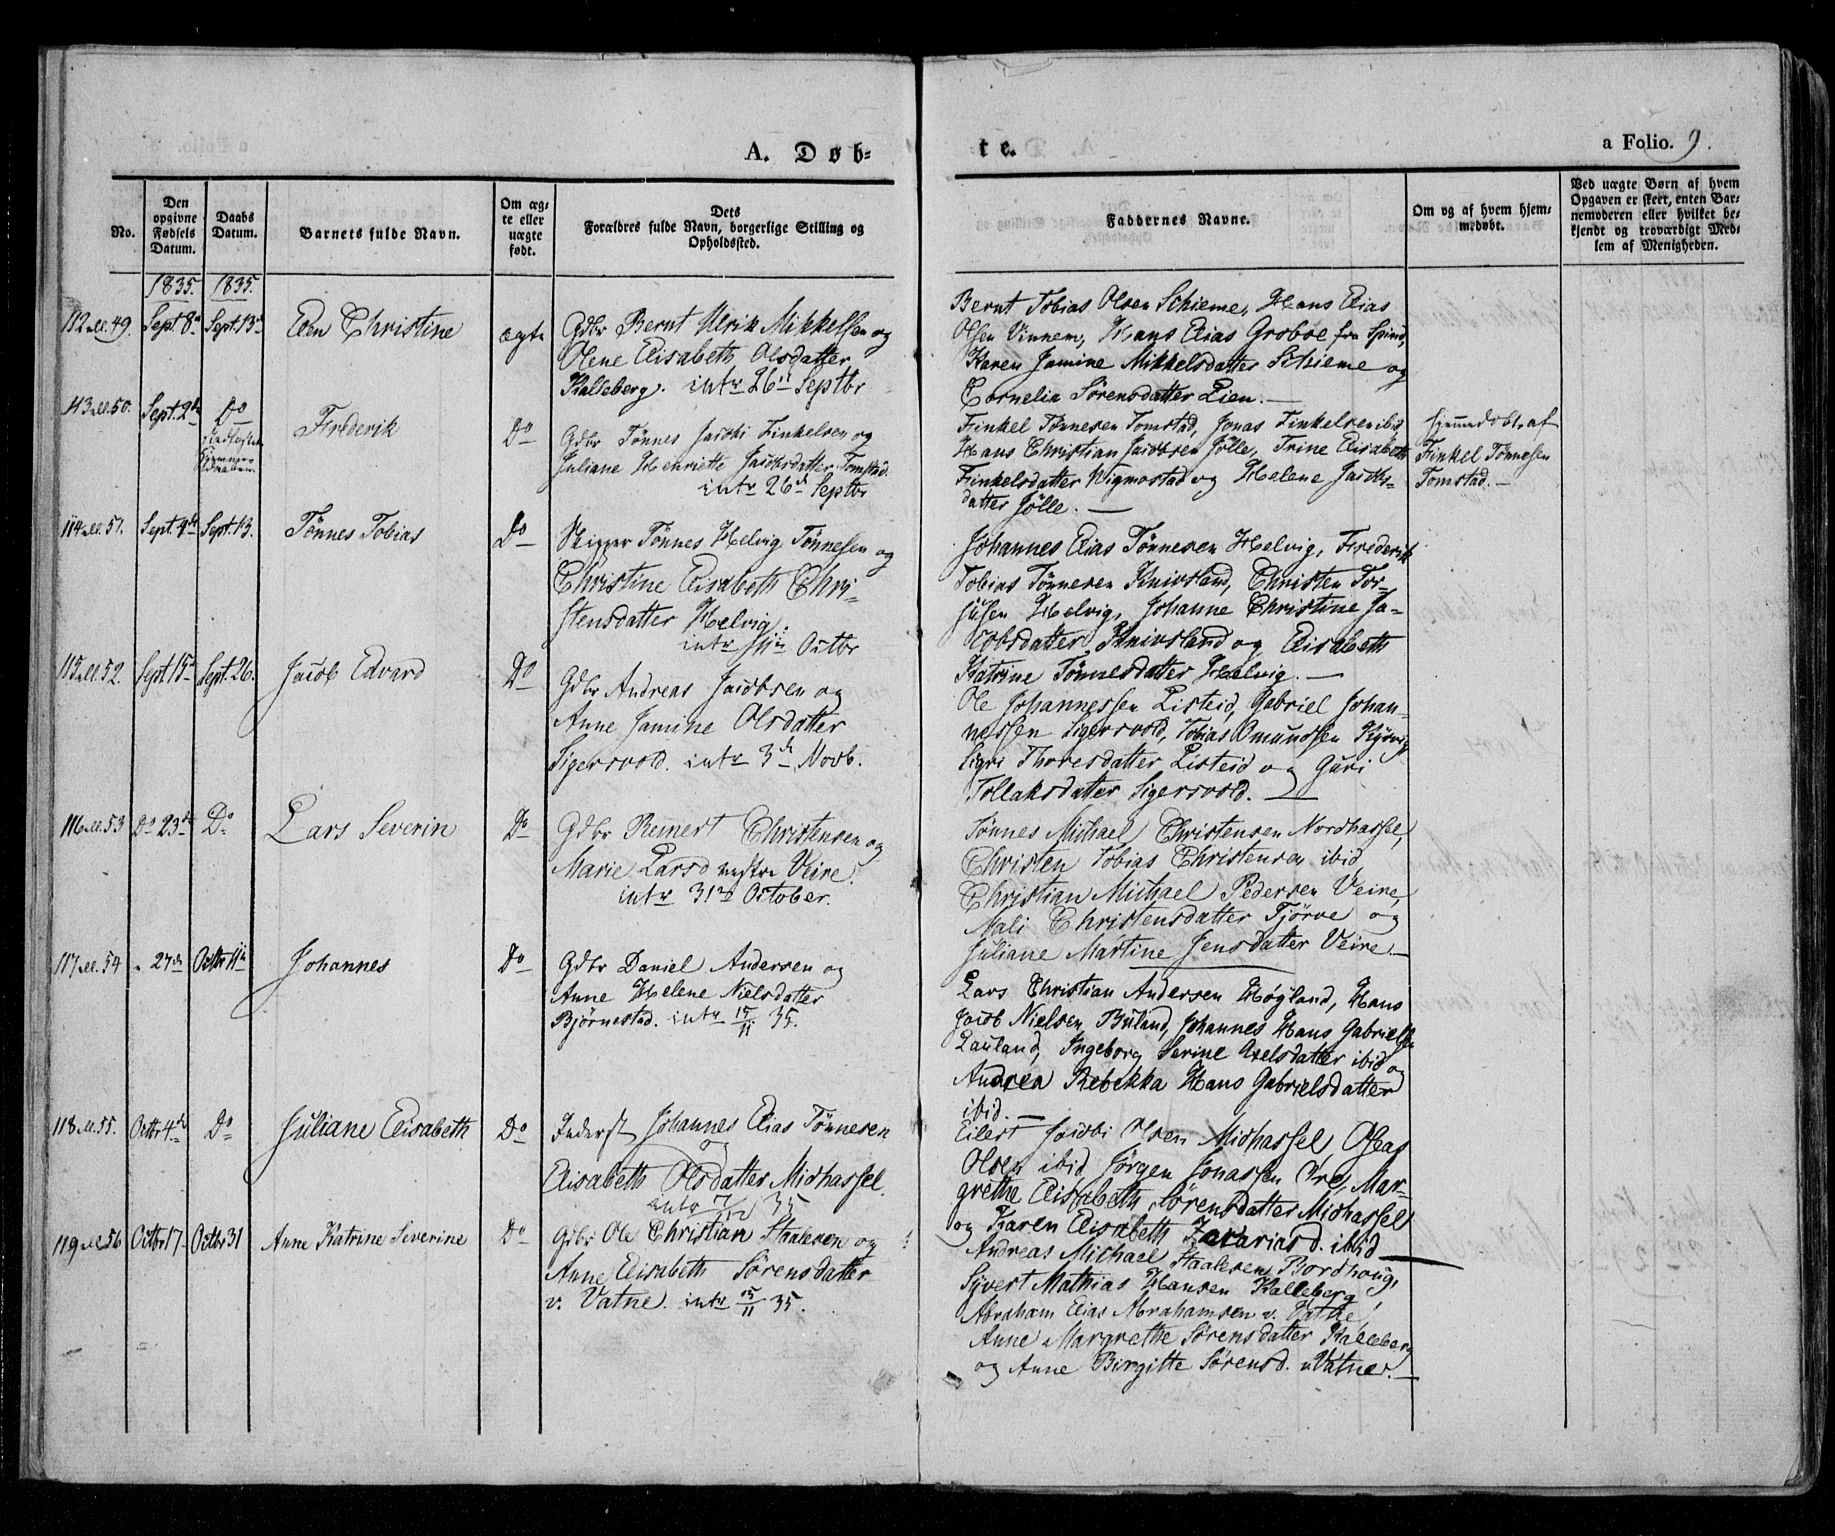 A. Døb-
te.
a Folio. 9.
No.
Den opgivne Fødsels Datum.
Daabs Datum.
Barnets fulde Navn.
Om æg-
te eller
uægte
født.
Dets
Forældres fulde Navn, borgerlige Stilling og
Opholdssted.
Faddernes Navne.
Om og af hvem hjem-
medøbt.
Ved uægte Børn af hvem
Opgaven er skeet, enten Bar-
nemoderen eller hvilket be-
kjendt og troværdigt Med-
lem af Menigheden.
1835. 1835.
112 49. Sept 8 Sept. 13 Elen Christine ægte
Gdbr Bernt Ulrik Mikkelsen og
Olene Elisabeth Olsdatter
Kalleberg. intr 26 Septbr
Bernt Tobias Olsen Schieme, Hans Elias
Olsen Vinnem, Hans Elias Grobøe fra Spind,
Karen Jamine Mikkelsdatter Schieme og
Cornelia Sørensdatter Lien.
50. Sept. 2 Do Frederik Do
Gdbr Tønnes Jacobi Finkelsen og
Juliane Henriette Jacobsdatter Tomstad.
intr 26 Septbr
Finkel Tønnesen Tomstad, Jonas Finkelsen ibid
Hans Christian Jacobsen Jølle, Trine Elisabeth
Finkelsdatter Wigmostad og Helene Jacobs-
datter Jølle.
hjemmedøbt af
Finkel Tønnesen
Tomstad.
114 51. Sept. 4 Sept. 13. Tønnes Tobias Do
Skipper Tønnes Helvig Tønnesen og
Christine Elisabeth Chri-
stensdatter Helvig.
intr 11 Octbr
Johannes Elias Tønnesen Helvig, Frederik
Tobias Tønnesen Knivsland, Christen Tor-
jusen Helvig, Johanne Christine Ja-
cobsdatter Knivsland og Elisabeth
Katrine Tønnesdatter Helvig.
115 52. Sept 15 Sept. 26. Jacob Edvard Do
Gdbr Andreas Jacobsen og
Anne Jamine Olsdatter
Sigersvold. intr 3 Novb.
Ole Johannessen Listeid, Gabriel Johan-
nessen Sigersvold, Tobias Omundsen
Sigri Thoresdatter Listeid og Guri
Tollaksdatter Sigersvold.
116 53 Do 23 Do Lars Severin Do
Gdbr Reinert Christensen og
Marie Larsd vestre Veire.
intr 31 October.
Tønnes Michael Christensen Nordhassel,
Christen Tobias Christensen ibid
Christian Michael Pedersen Veire,
Mali Christensdatter Tjørve og
Juliane Martine Jensdatter Veire.
117 54 " 27 Octbr 11 Johannes Do
Gdbr Daniel Andersen og
Anne Helene Nielsdatter
Bjørnestad. intr 15/11 35.
Lars Christian Andersen Høgland, Hans
Jacob Nielsen Buland, Johannes Hans Gabrielsen
Lauland, Ingeborg Serine Axelsdatter ibid og
Andrea Rebekka Hans Gabrielsdatter
ibid.
118 55. Octbr 4 Do Juliane Elisabeth Do
Inderst Johannes Elias Tønnesen
og
Elisabeth Olsdatter Midhassel.
intr 7/12 35
Eilert Jacobi Olsen Midhassel, Oleas
Olsen ibid Jørgen Jonassen Ore, Mar-
grethe Elisabeth Sørensdatter Midhassel
og Karen Elisabeth Zacariasd. ibid
119 56 Octbr 17 Octbr 31 Anne Katrine Severine Do
Gdbr Ole Christian Staalesen og
Anne Elisabeth Sørensdatter
v. Vatne. intr 15/11 35.
Andreas Michael Staalesen Bordhoug,
Syvert Mathias Hansen Kalleberg,
Abraham Elias Abrahamsen v. Vatne,
Anne Margrethe Sørensdatter Kalleberg
og Anne Birgitte Sørensd. v Vatne.